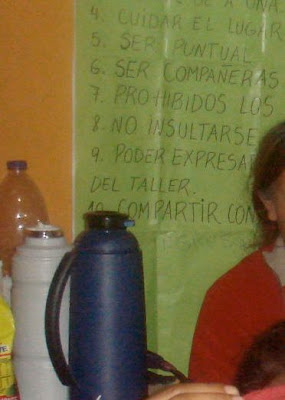 A UNA
4. CUIDAR EL LUGAR
5. SER PUNTUAL
6. SER COMPAÑERAS
7. PROHIBIDOS LOS
8. NO INSULTARSE
9. PODER EXPRESAR
DEL TALLER.
10. COMPARTIR CON